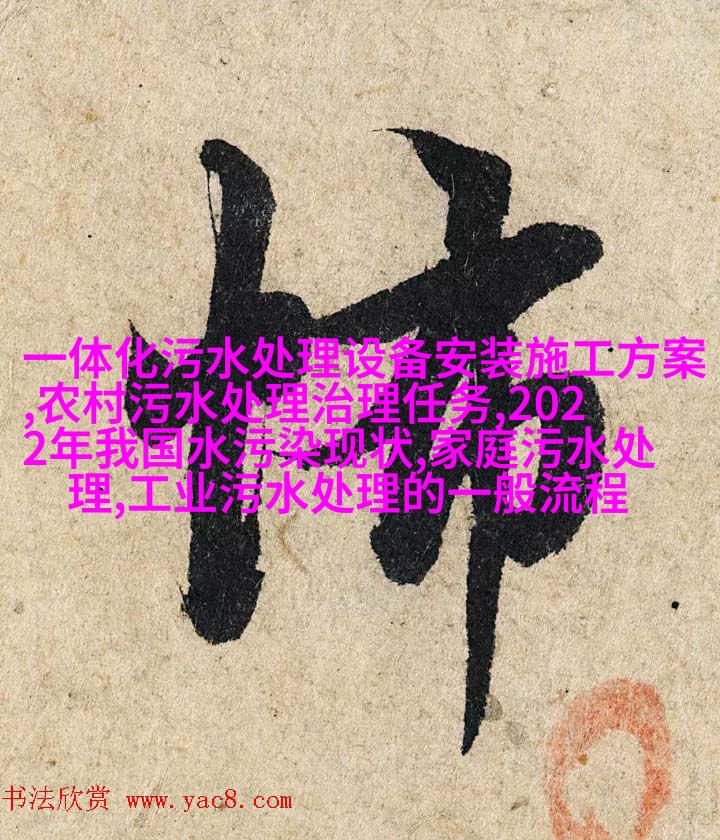 柿
一体化污水处理设备安装施工方案
,农村污水处理治理任务,202
2年我国水污染现状,家庭污水处
理,工业污水处理的一般流程
书法欣赏 www.yac8.com